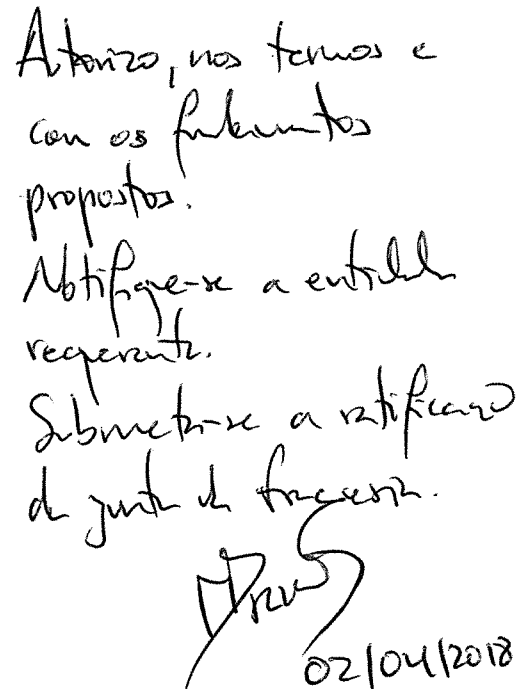 Autorizo, nos termos e
com os fundamentos
propostos.
Notifique-se a entidade
requerente.
Submeta-se a ratificação
da junta de freguesia.
02/04/2018